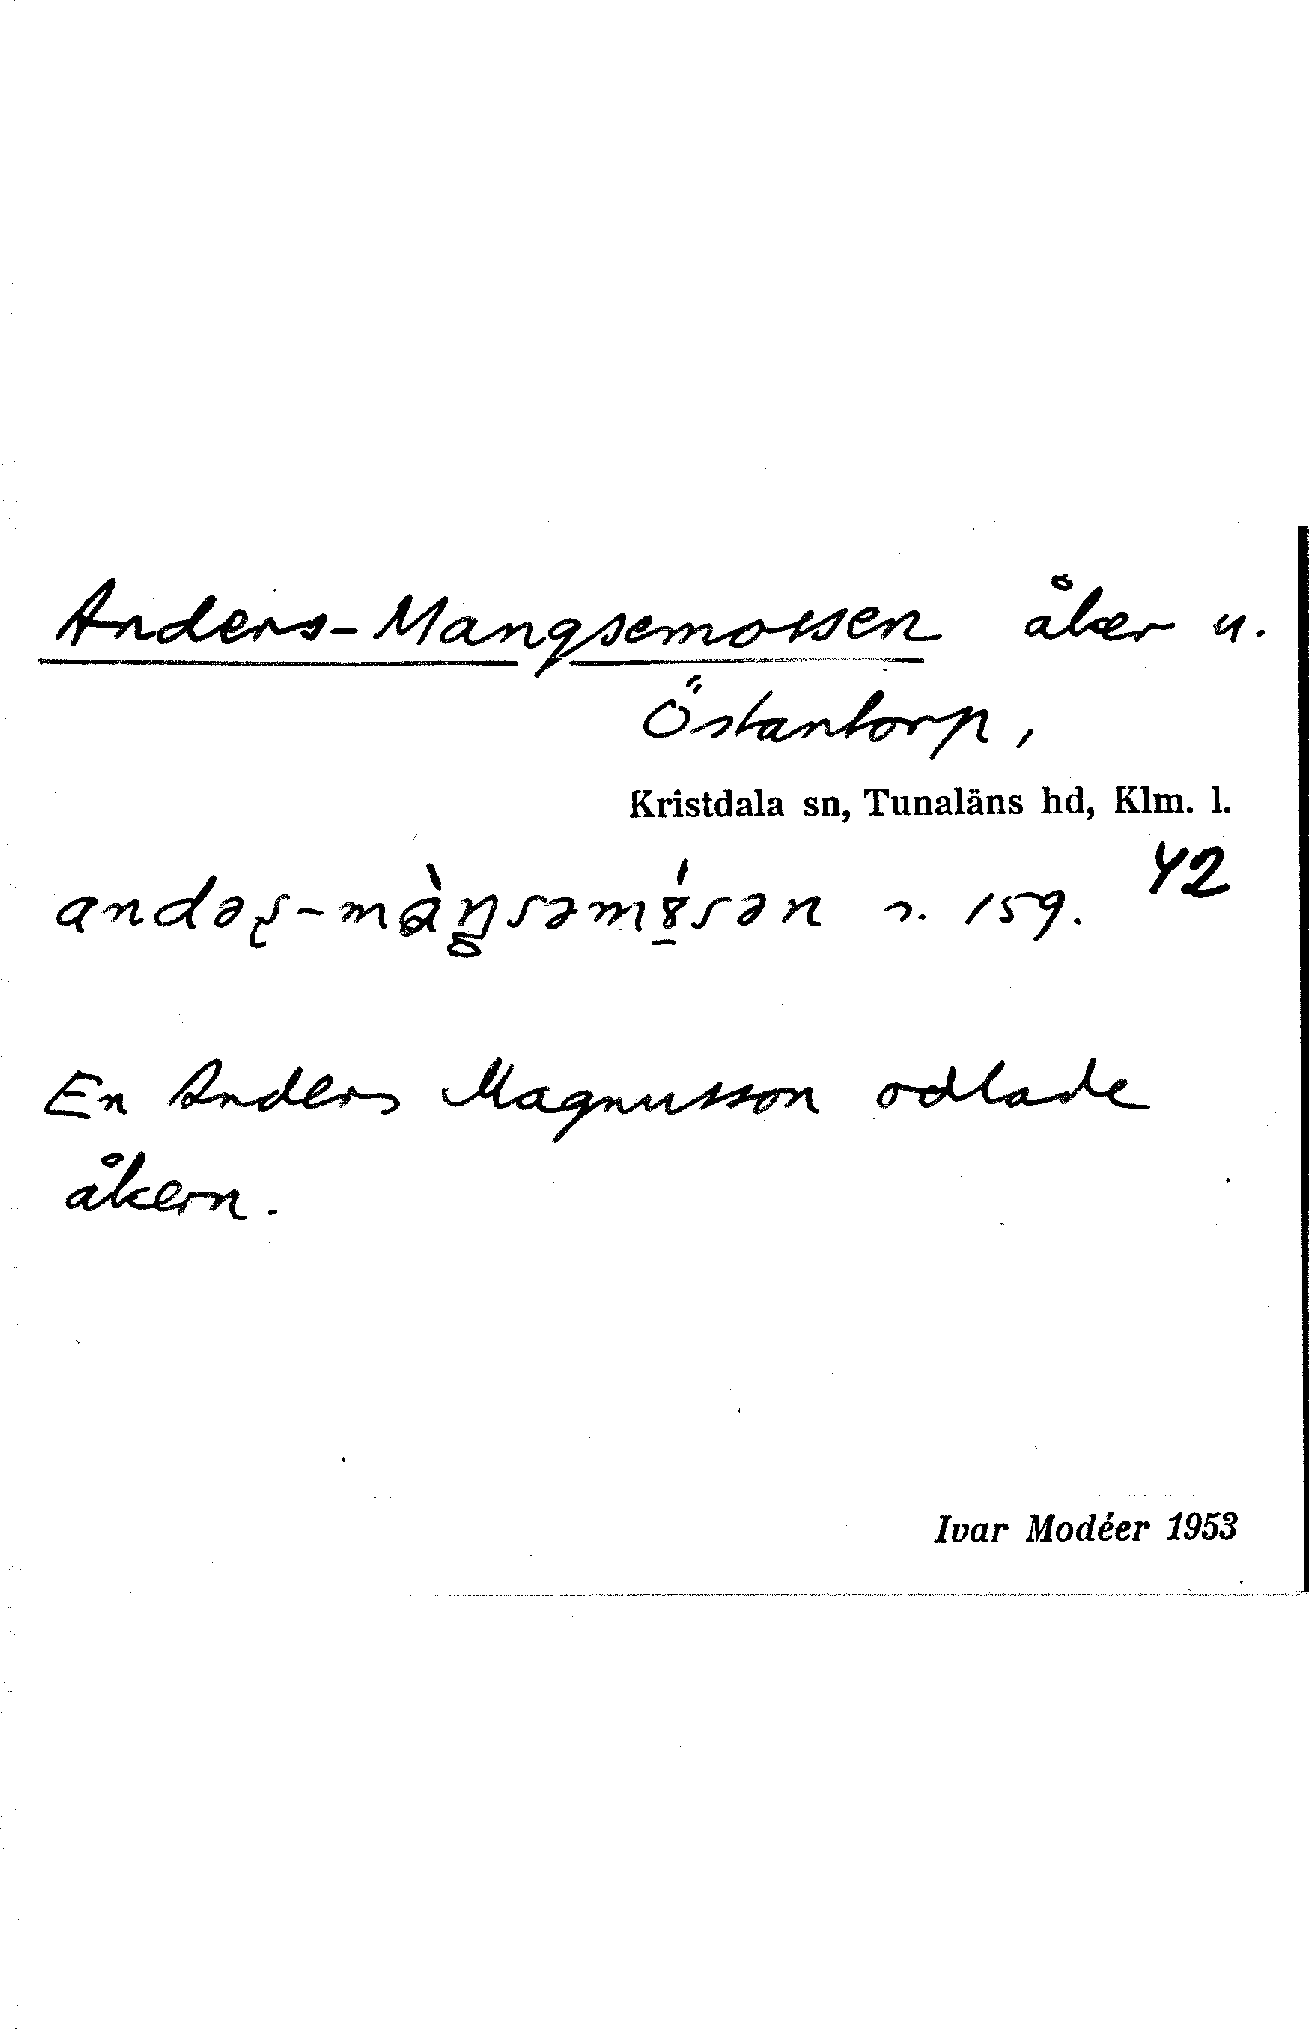 Anders-Mangsemossen åker u.
Östantorp,
Kristdala sn, Tunaläns hd, Klm. l.
42
159.
En Anders Magnusson odlade
åkern.
Ivar Modéer 1953